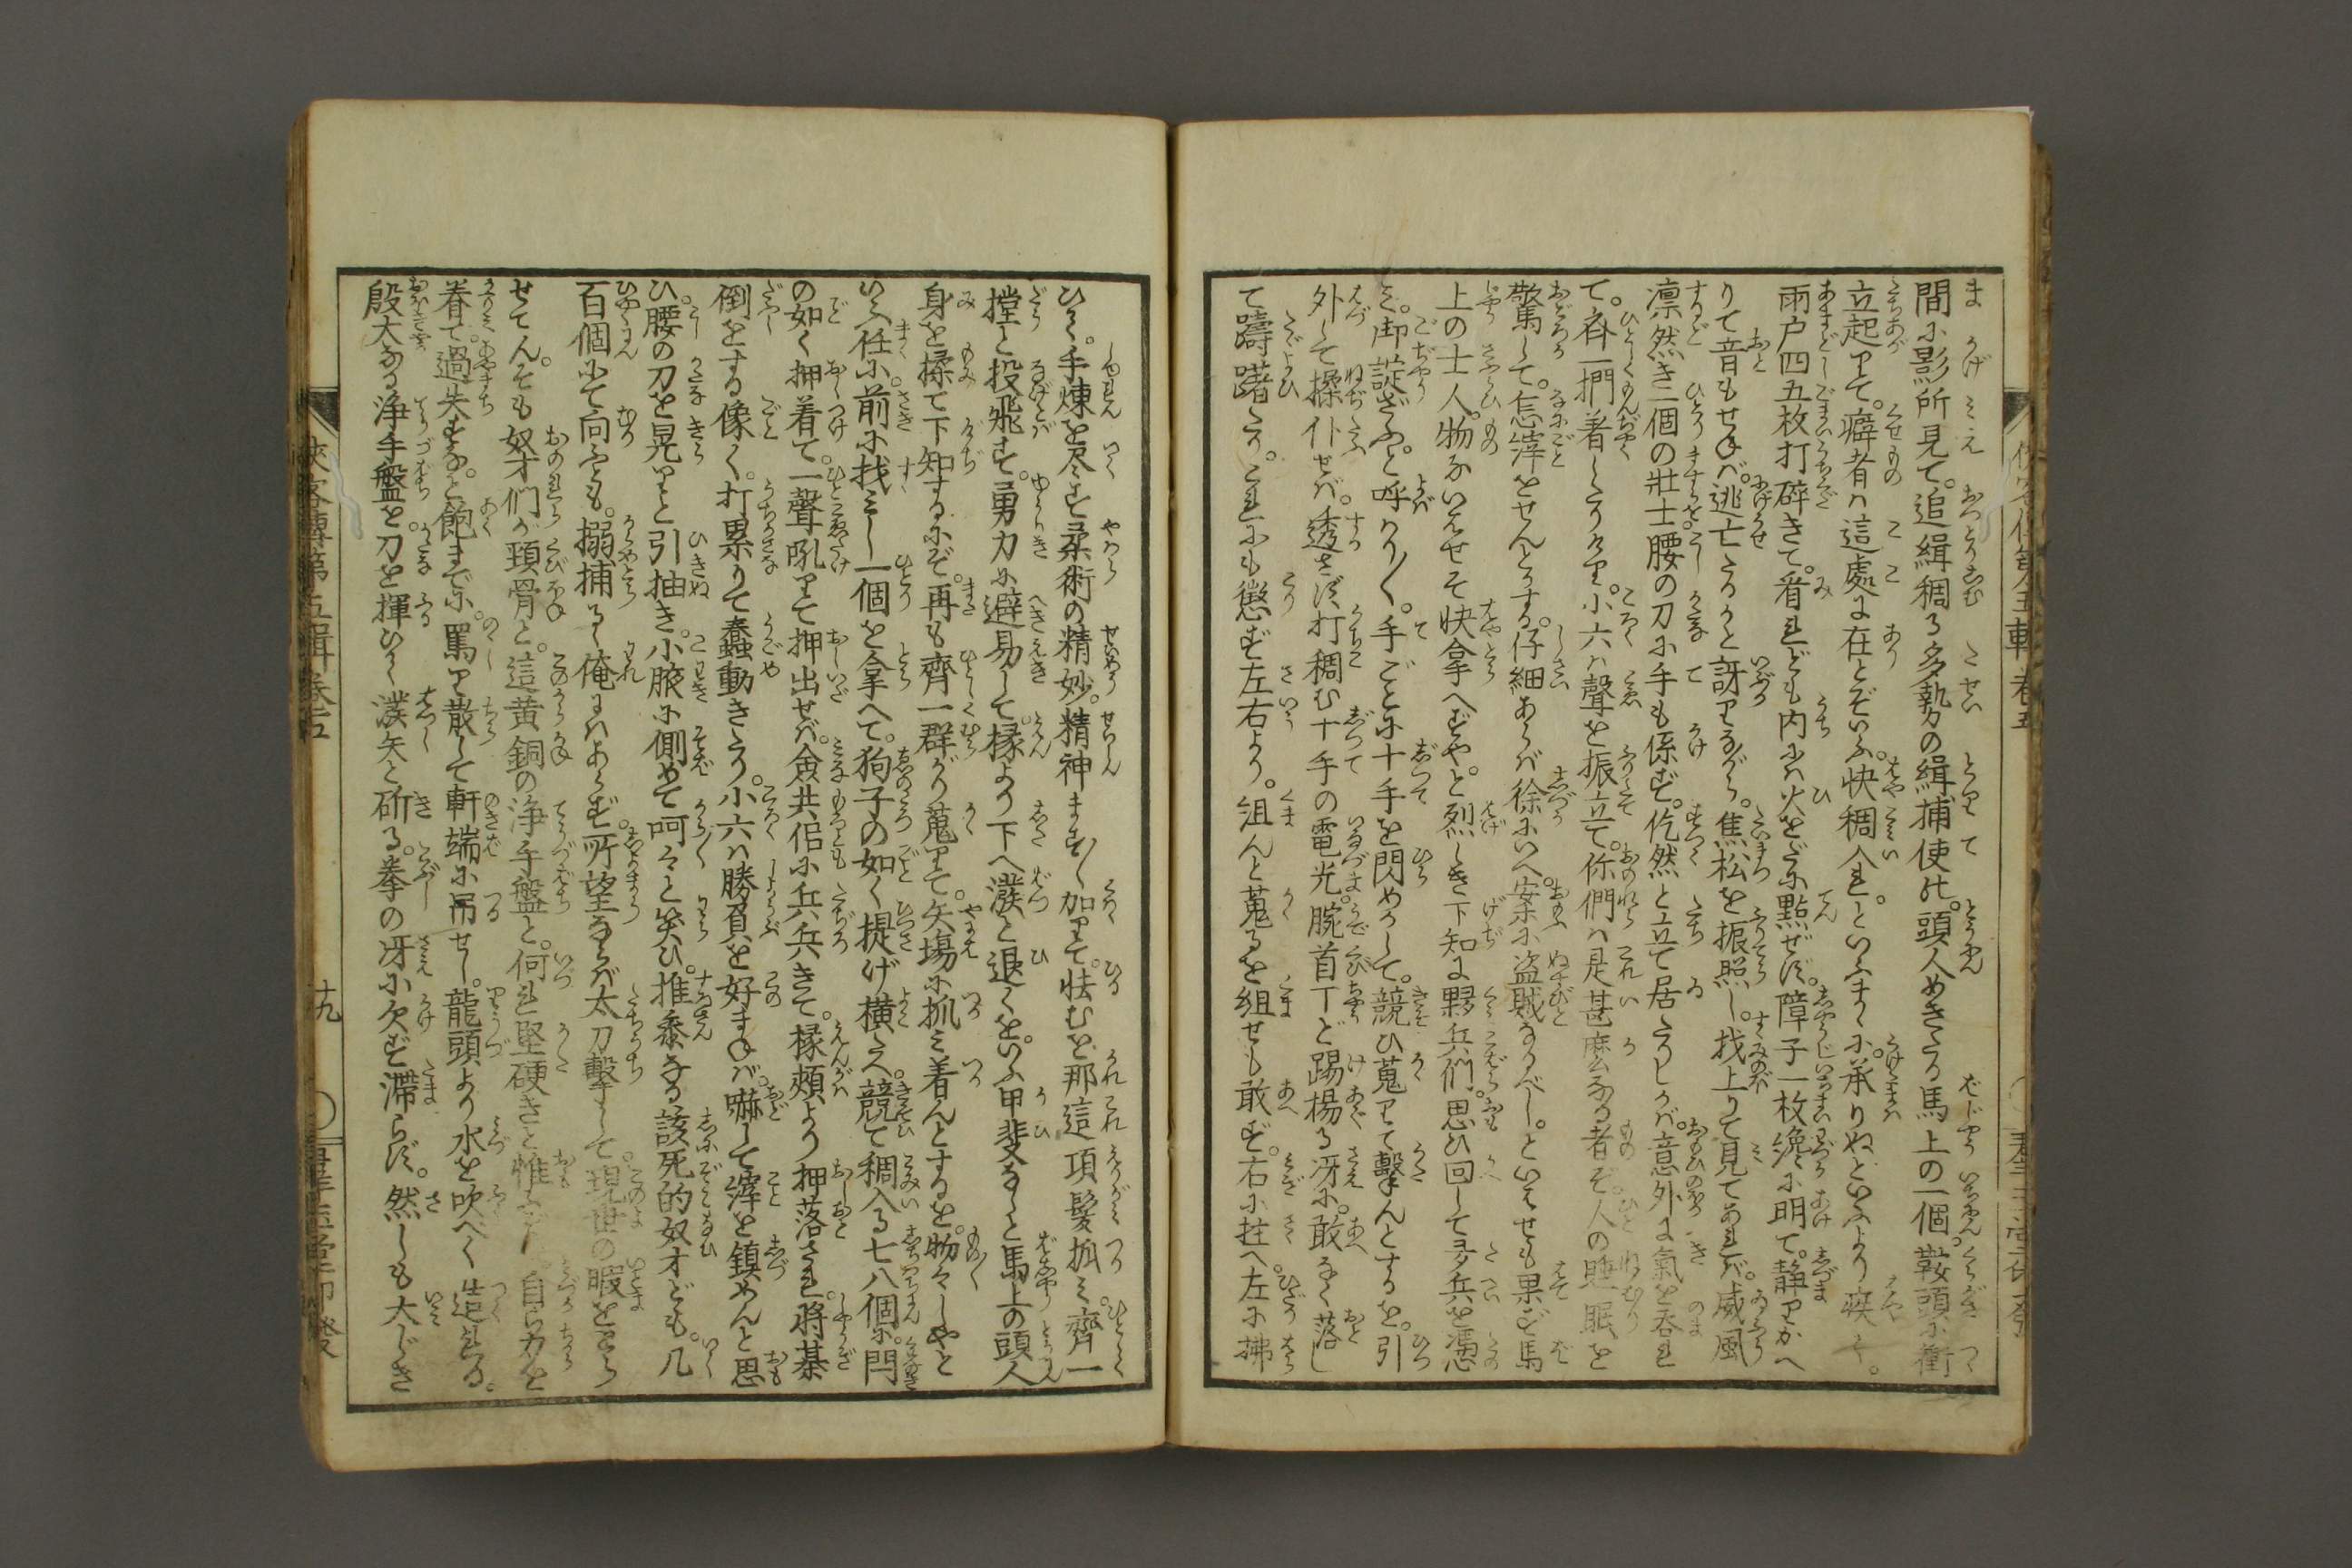 間に影所見て。追緝稠る多勢の緝捕使。頭人めきたる馬上の一個。鞍頭に衝
立起りて。癖者は這處に在とぞいふ。快稠入れ。といふまゝに。承りぬといふより疾
雨戸四五枚打碎きて。看れども内には火をだに點ぜず。障子一枚纔に明て。静りかへ
りて音もせねば。逃亡たるかと訝りながら。焦松を振照し。找上りて見てあれば。威風
凛然き一個の壯士腰の刀に手も係ず。仡然と立て居たりしかば。意外に氣を呑れ
て。齊一捫着したりける。小六は聲を振立て。你們は是甚麼なる者ぞ。人の睡眠を
驚して。怎滓をせんとかする。仔細あらば徐にいへ。案に盗賊なるべし。といはせも果ず馬
上の士人。物ないはせそ快拿へずや。と烈しき下知に夥兵們。思ひ回して多兵を憑
み。御諚ざふ。と呼はり〱。手ごとに十手を閃めかして。競ひ蒐りて撃んとするを。引
外して操仆せば。透さず打稠む十手の電光。腕首丁ど踢揚る冴に。敢なく落し
て躊躇たり。これにも懲ず左右より。組んと蒐るを組せも敢ず。右に拄へ左に拂
ひつ。手煉を尽す柔術の精妙。精神ます〱加りて。怯むを那這項髪抓み。齊一
摚と投飛す。勇力に避易して。縁より下へ濮と退くを。いふ甲斐なしと馬上の頭人
身を揉て下知するにぞ。再も齊一群がり蒐りて。矢場に抓み着んとするを。物々しやと
いふ任に。前に找みし一個を拿へて。狗子の如く提げ横たへ。競て稠入る七八個に。閂
の如く押着て。一聲吼りて押出せば。僉共侶に兵兵きて。縁頬より押落され。將棊
倒をする像く。打累りて蠢動きたり。小六は勝負を好まねば。嚇して滓を鎮めんと思
ひ。腰の刀を晃りと引抽き。小腋に側めて呵々と笑ひ。推黍なる該死的奴才ども。几
百個にて向ふとも。搦捕るゝ俺にはあらず。所望ならば太刀擊して。現世の暇をとら
せてん。そも奴才們が頚骨と。這黄銅の浄手盤と。何れ堅硬きと惟ふ
眷て。過失すな。と飽までに。罵り散して軒端に吊せし。龍頭より水を吹べく造れる。
殷大なる浄手盤を。刀を揮ひて濮矢と斫る。拳の冴に欠ず滞らず。然しも大じき
俠客傳第五輯卷五
十九